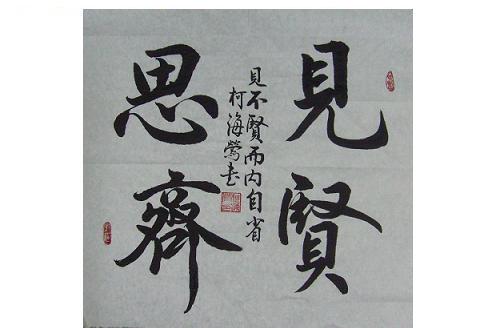 見賢
思齊
見不賢而內自省
柯海鶯書